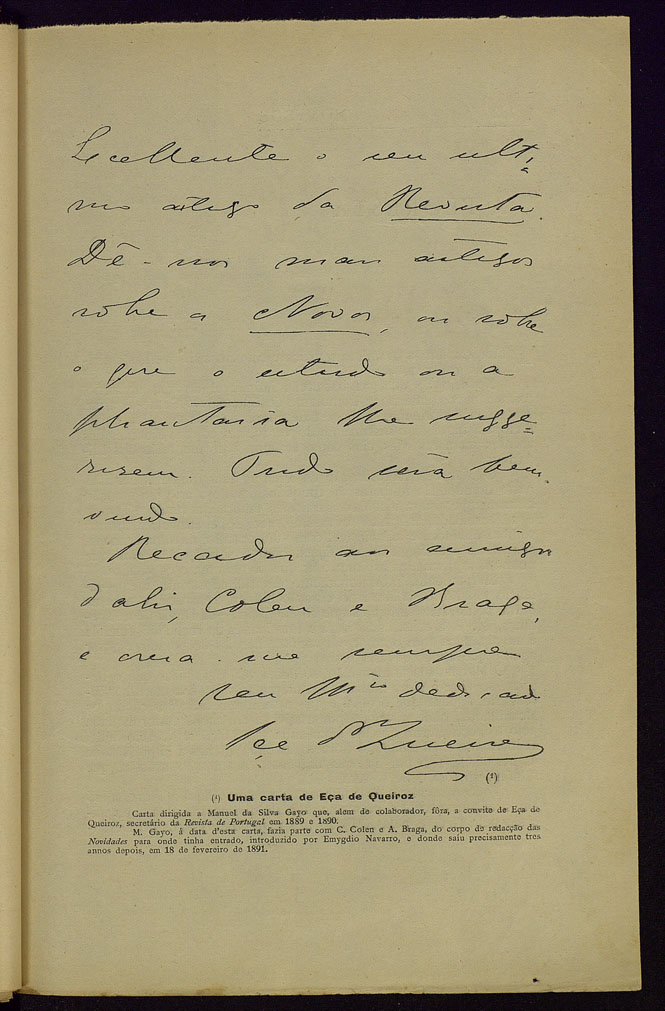 Excellente o seu ulti-
mo artigo da Revista.
Dê-nos mais artigos
sobre a Novos, ou sobre
o que o estudo ou a
phantasia lhe sugge-
rirem. Tudo será bem-
vindo.
Recados aos amigos
d'ahi, Colen e Braga,
e creia-me sempre
seu Mto dedicado
Eça de Queiroz
(¹)
(¹) Uma carta de Eça de Queiroz
Carta dirigida a Manuel da Silva Gayo que, alem de colaborador, fôra, a convite de Eça de
Queiroz, secretário da Revista de Portugal em 1889 e 1890.
M. Gayo, á data d'esta carta, fazia parte com C. Colen e A. Braga, do corpo de redacção das
Novidades para onde tinha entrado, introduzido por Emygdio Navarro, e donde saiu precisamente tres
annos depois, em 18 de fevereiro de 1891.